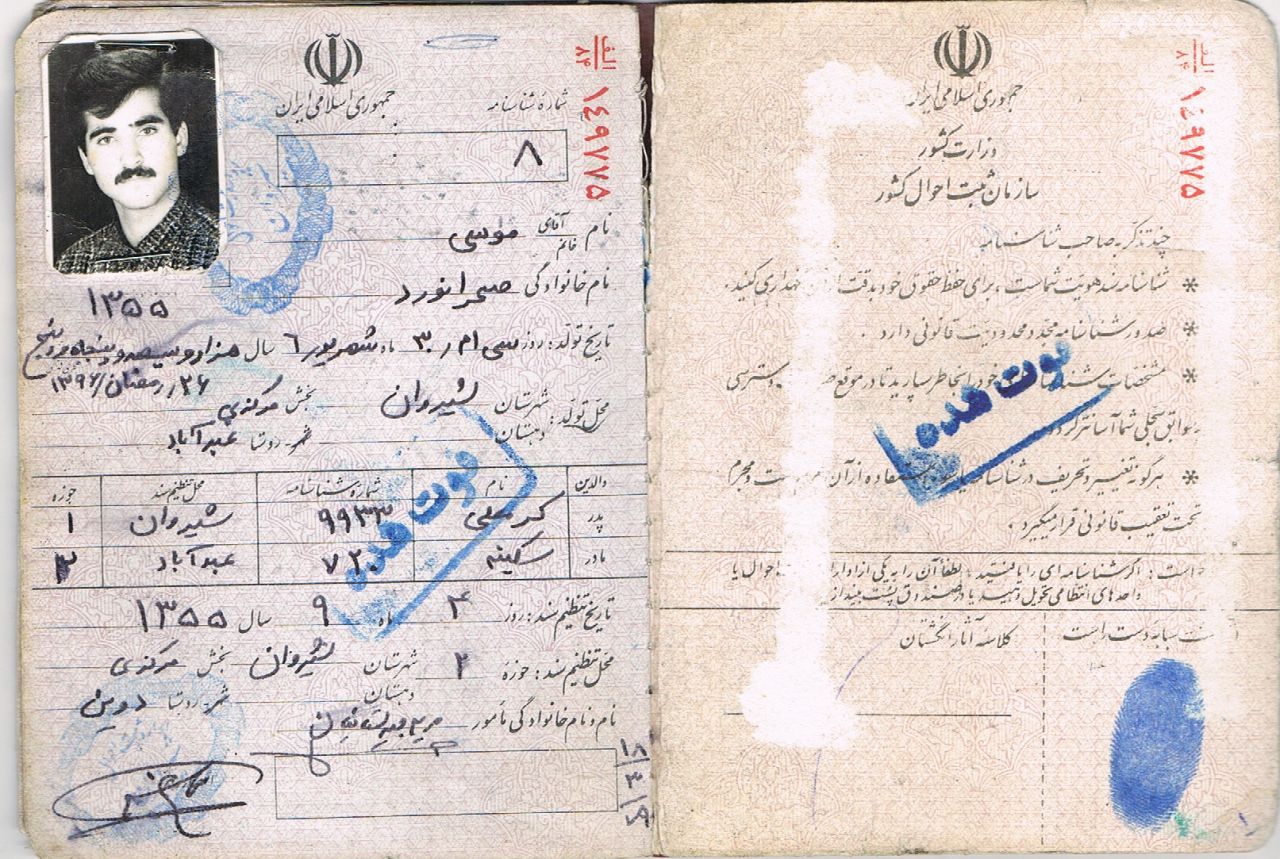 جمهوری اسلامی ایران
شماره شناسنامه
الف
۸۴
۱۴۹۷۷۵
۸
نام آقای خانم موسی
نام خانوادگی صحرانورد
۱۳۵۵
تاریخ تولد: روز سی ام ۳۰ ماه شهریور ۶ سال هزار و سیصد و پنجاه و پنج
۲۶/رمضان/۱۳۹۶
محل تولد: شهرستان شیروان بخش مرکزی
دهستان شهر-روستا عبدآباد
والدین نام شماره شناسنامه محل تنظیم سند حوزه
پدر ۹۹۳۳ شیروان ۱
مادر سکینه ۷۲۰ عبدآباد ۳
فوت شده
تاریخ تنظیم سند: روز ۴ ماه ۹ سال ۱۳۵۵
محل تنظیم سند: حوزه ۲ شهرستان شیروان بخش مرکزی
دهستان شهر-روستا دوین
نام و نام خانوادگی مأمور
۱۸
۳
جمهوری اسلامی ایران
الف
۸۴
۱۴۹۷۷۵
وزارت کشور
سازمان ثبت احوال کشور
چند تذکر به صاحب شناسنامه
* شناسنامه سند هویت شماست، برای حفظ حقوق خود بدقت از آن نگهداری کنید.
* صدور شناسنامه مجدد محدودیت قانونی دارد
* مشخصات خود را بخاطر بسپارید تا در موقع دسترسی
سوابق سجلی شما آسانتر گردد
* هرگونه تغییر و تحریف در شناسنامه استفاده از آن و مجرم
تحت تعقیب قانونی قرار میگیرد.
فوت شده
است: اگر شناسنامه ای را یافتید، لطفاً آن را به یکی از ادارات احوال یا
واحدهای انتظامی تحویل دهید یا در صندوق پست بیندازید
کلاسه آثار انگشتان
سبابه دست راست